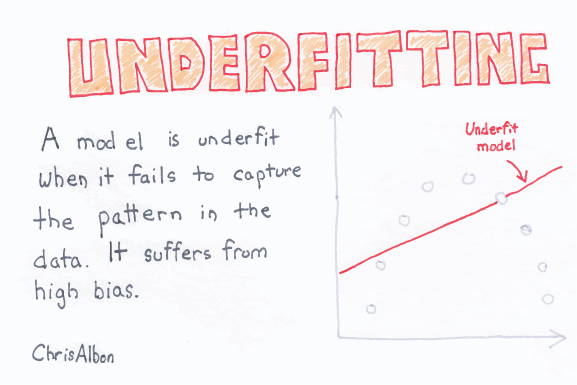 UNDERFITTING
A model is underfit
when it fails to capture
the pattern in the
data. It suffers from
high bias.
Underfit
model
ChrisAlbon